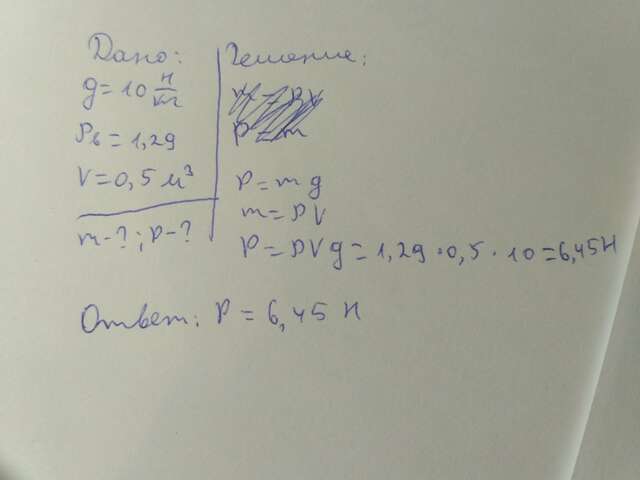 Дано:
g = 10 Н/кг
ρв = 1,29
V = 0,5 м³
m - ? ; P - ?
Решение:
P = mg
m = ρV
P = ρVg = 1,29 · 0,5 · 10 = 6,45 Н
Ответ: P = 6,45 Н